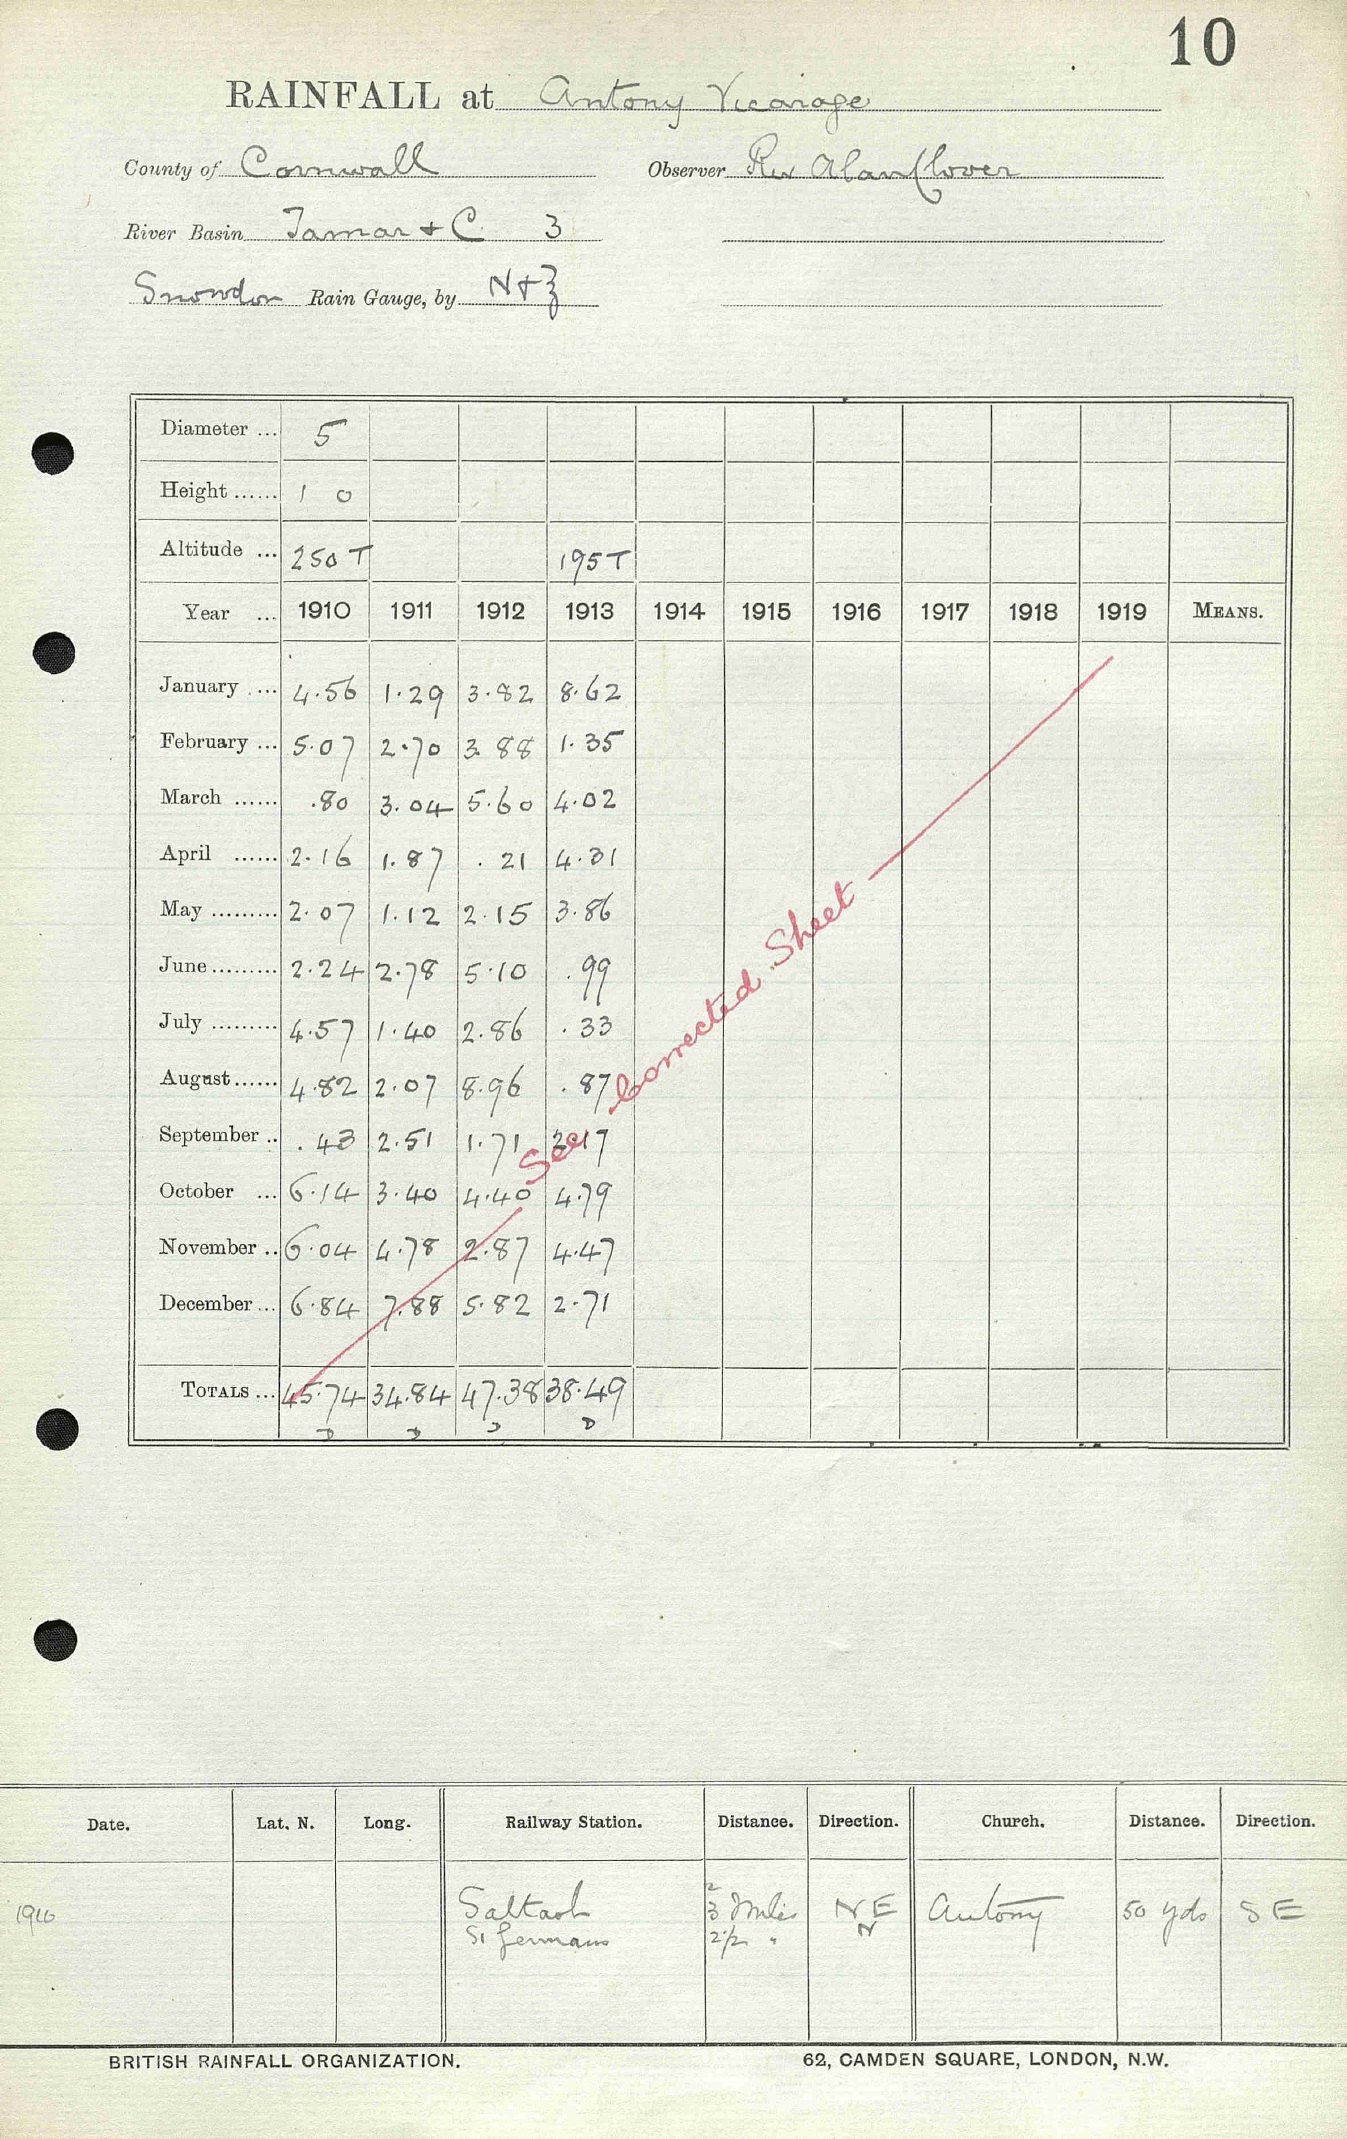 10
RAINFALL at Antony Vicarage
County of Cornwall Observer Rev Alan Clover
River Basin Tamar + C 3
Snowdon Rain Gauge, by N + Z
Diameter ... 5
Height ...... 1 0
Altitude ... 250 T 195 T
Year ... 1910 1911 1912 1913 1914 1915 1916 1917 1918 1919 MEANS.
January .... 4.56 1.29 3.82 8.62
February ... 5.07 2.70 3.88 1.35
March ...... .80 3.04 5.60 4.02
April ...... 2.16 1.87 .21 4.31
May ......... 2.07 1.12 2.15 3.86
June ......... 2.24 2.78 5.10 .99
July ......... 4.57 1.40 2.86 .33
August ...... 4.82 2.07 8.96 .87
September .. .43 2.51 1.71 3.17
October ... 6.14 3.40 4.40 4.79
November .. 6.04 4.78 2.87 4.47
December ... 6.84 7.88 5.82 2.71
TOTALS ... 45.74 34.84 47.38 38.49
D D D D
See Corrected Sheet
Date. Lat. N. Long. Railway Station. Distance. Direction. Church. Distance. Direction.
1910 Saltash 3 Miles NE Antony 50 yds SE
St Germans 2½ " N
BRITISH RAINFALL ORGANIZATION. 62, CAMDEN SQUARE, LONDON, N.W.